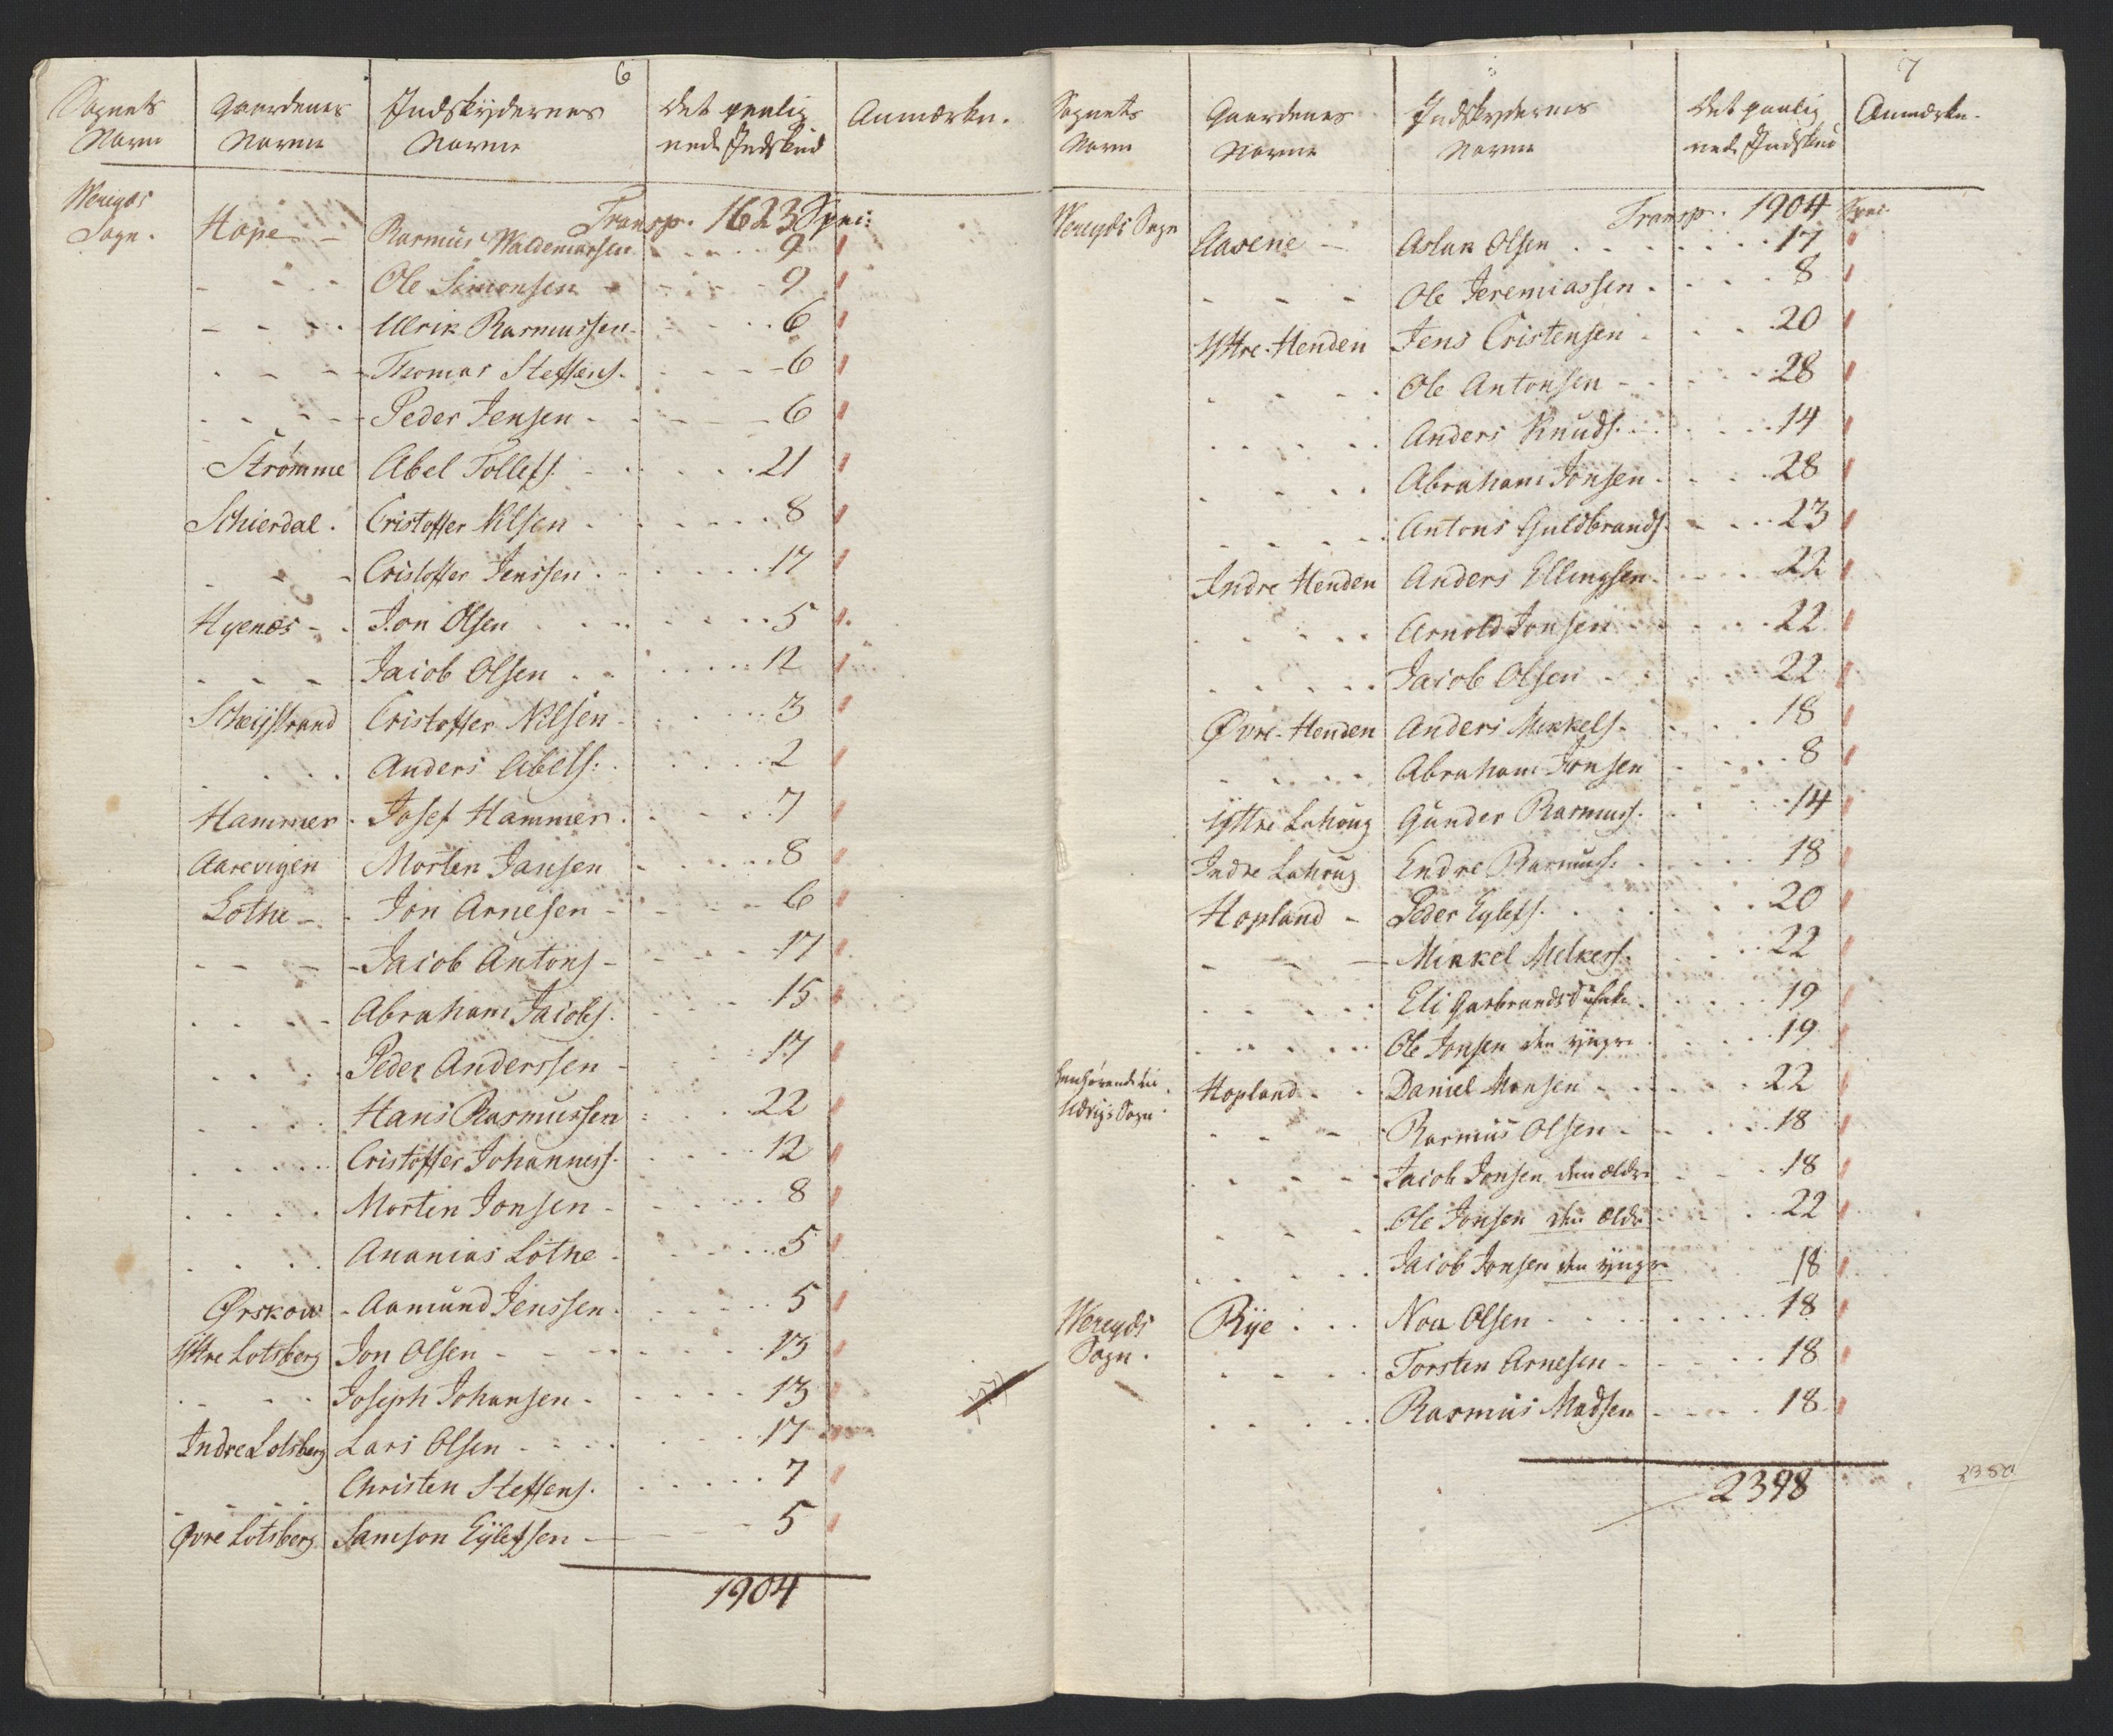 6
Sognets Navn | Gaardenes Navne | Indskydernes Navne | Det paalignede Indskud | Anmærkn.
Transp. 1623 Speci:
Wereyds Sogn. | Hope - | Rasmus Waldemarsen | 9
Ole Simonsen - | 9
Ulrik Rasmussen | 6
Thomas Steffens. | 6
Peder Jensen | 6
Strømme | Abel Tollefs. | 21
Schierdal. | Cristoffer Nilsen | 8
Cristoffer Jenssen | 17
Hyenæs - | Jon Olsen | 5
Jacob Olsen | 12
Scheijstrand | Cristoffer Nilsen | 3
Anders Abels: | 2
Hammer | Josef Hammer | 7
Aarevigen | Morten Jansen | 8
Lothe - | Jon Arnesen | 6
Jacob Antons | 17
Abraham Jacobs. | 15
Peder Anderssen | 17
Hans Rasmussen | 22
Cristoffer Johanness. | 12
Morten Jonsen | 8
Ananias Lothe | 5
Ørskow | Aamund Jenssen | 5
Yttre Lotsberg | Jon Olsen | 13
Joseph Johansen | 13
Indre Lotsberg | Lars Olsen | 17
Christen Steffens. | 7
Øvre Lotsberg | Samson Eylefsen | 5
1904
7
Sognets Navn | Gaardenes Navne | Indskydernes Navne | Det paalignede Indskud | Anmærkn.
Transp. 1904 Speci.
Wereyds Sogn | Aasene - | Aslak Olsen | 17
Ole Jeremiassen | 8
Yttre Henden | Jens Cristensen | 20
Ole Antonsen | 28
Anders Knuds. | 14
Abraham Jonsen | 28
Antons Guldbrands. | 23
Indre Henden | Anders Ellingsen | 22
Arnold Jonsen | 22
Jacob Olsen | 22
Øvre Henden | Anders Mikkels. | 18
Abraham Jonsen | 8
Yttre Lahoug | Gunder Rasmuss. | 14
Indre Lahoug | Endre Rasmuss. | 18
Hopland - | Peder Eylefs. | 20
Mikkel Melkers. | 22
Eli Gasbrandsd | 19
Ole Jonsen den yngre | 19
henhørende til Sogn. | Hopland | Daniel Monsen | 22
Rasmus Olsen | 18
Jacob Jonsen den ældre | 18
Ole Jonsen den ældre | 22
Jacob Jonsen den yngre | 18
Wereyds Sogn. | Rye | Noa Olsen | 18
Torsten Arnesen | 18
Rasmus Madsen | 18
2398